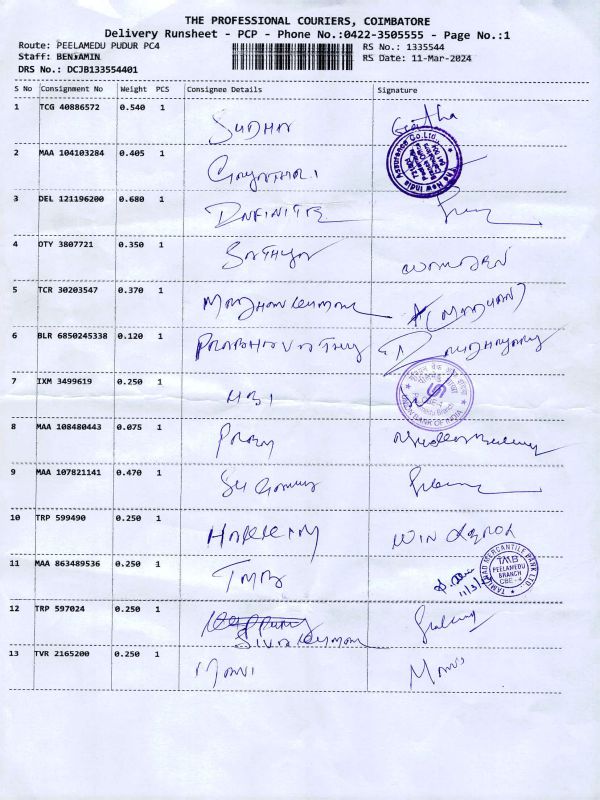 THE PROFESSIONAL COURIERS, COIMBATORE
Delivery Runsheet - PCP - Phone No.:0422-3505555 - Page No.:1
Route: PEELAMEDU PUDUR PC4
RS No.: 1335544
Staff: BENJAMIN
RS Date: 11-Mar-2024
DRS No.: DCJB133554401
S No Consignment No Weight PCS Consignee Details Signature
1 TCG 40886572 0.540 1
SUDHA Geetha
2 MAA 104103284 0.405 1
The New India Assurance Co.Ltd.
GAYATHRI
3 DEL 121196200 0.680 1
INFINITE
4 OTY 3807721 0.350 1
SATHYA
5 TCR 30203547 0.370 1
MADHANKUMAR
6 BLR 6850245338 0.120 1
PRABHAVATHY
7 IXM 3499619 0.250 1
UBI
UNION BANK OF INDIA
8 MAA 108480443 0.075 1
9 MAA 107821141 0.470 1
10 TRP 599490 0.250 1
11 MAA 863489536 0.250 1
TMB
TAMILNAD MERCANTILE BANK LTD
TMB
PEELAMEDU
BRANCH
CBE - 4
12 TRP 597024 0.250 1
SIVAKUMAR
13 TVR 2165200 0.250 1
MANI Mani